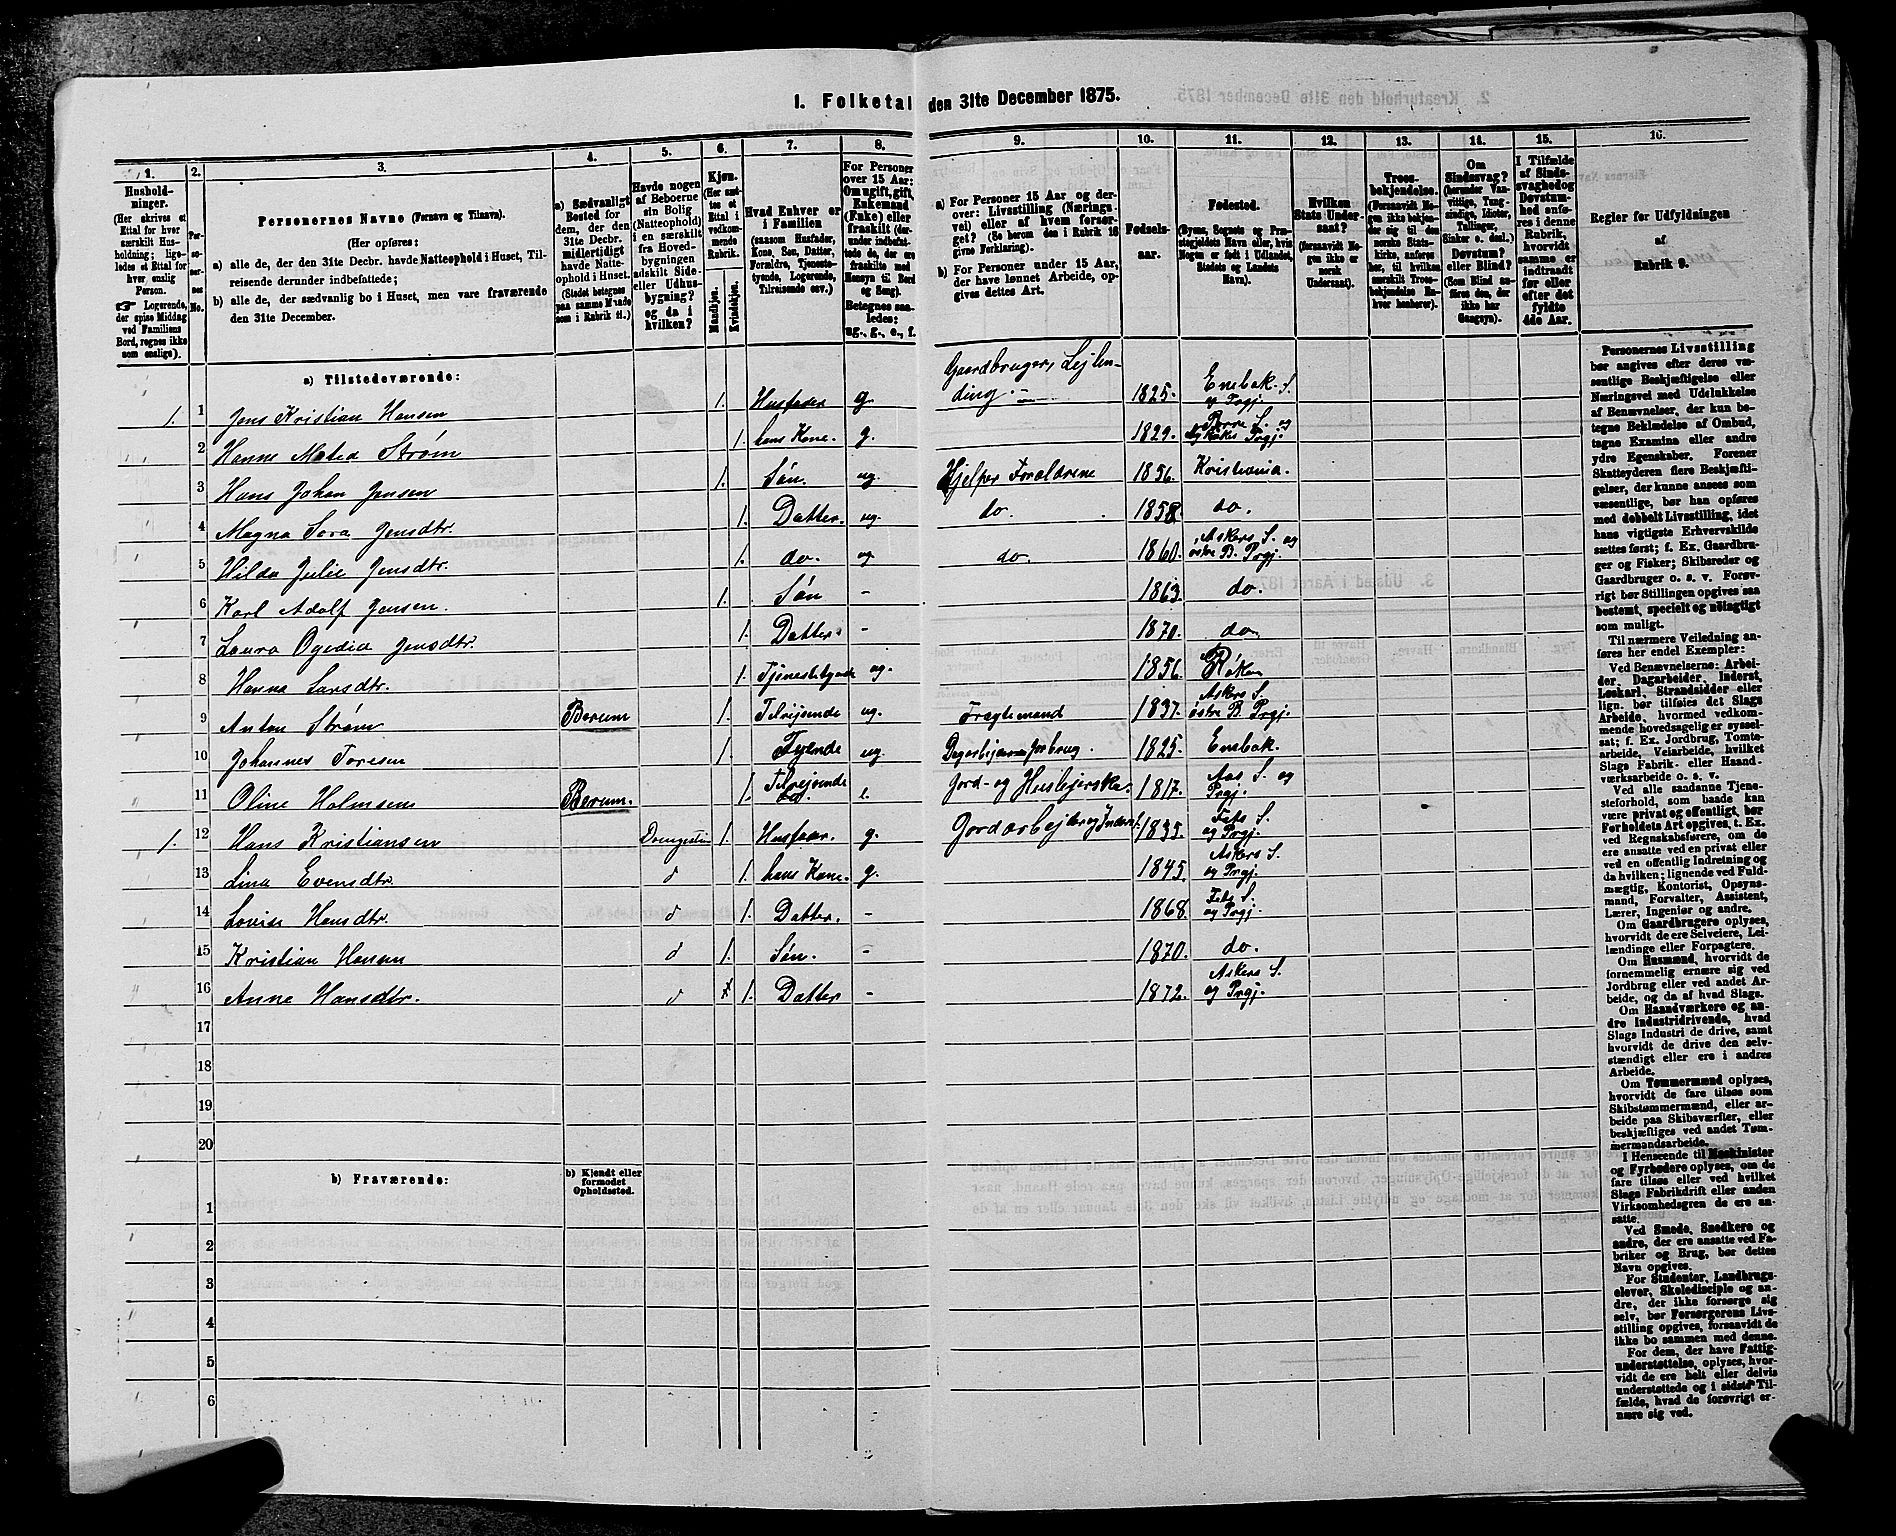 1. Folketal den 31te December 1875.
1.
Hushold-
ninger.
(Her skrives et
Ettal for hver
særskilt Hus-
holdning; lige-
ledes et Ettal for
hver enslig
Person.
☞ Logerende,
der spise Middag
ved Familiens
Bord, regnes ikke
som enslige).
2.
Per-
so-
ner-
nes
No.
3.
Personernes Navne (Fornavn og Tilnavn).
(Her opføres:
a) alle de, der den 31te Decbr. havde Natteophold i Huset, Til-
reisende derunder indbefattede;
b) alle de, der sædvanlig bo i Huset, men vare fraværende
den 31te December.
4.
a) Sædvanligt
Bosted for
dem, der den
31te Decbr.
midlertidigt
havde Natte-
ophold i Huset.
(Stedet betegnes
paa samme Maade
som i Rubrik 11.)
5.
Havde nogen
af Beboerne
sin Bolig
(Natteophold)
i en særskilt
fra Hoved-
bygningen
adskilt Side-
eller Udhus-
bygning?
og da i
hvilken?
6.
Kjøn.
(Her sæt-
tes et
Ettal i
vedkom-
mende
Rubrik.
Mandkjøn.
Kvindekjøn.
7.
Hvad Enhver er
i Familien
(saasom Husfader,
Kone, Søn, Datter,
Forældre, Tjeneste-
tyende, Logerende,
Tilreisende osv.)
8.
For Personer
over 15 Aar:
Om ugift, gift,
Enkemand
(Enke) eller
fraskilt (der-
under indbefat-
tede de, der ere
fraskilte med
Hensyn til Bord
og Seng).
Betegnes saa-
ledes:
ug., g., e., f.
9.
a) For Personer 15 Aar og der-
over: Livsstilling (Nærings-
vei) eller af hvem forsør-
get? (Se herom den i Rubrik 16
givne Forklaring).
b) For Personer under 15 Aar,
der have lønnet Arbeide, op-
gives dettes Art.
10.
Fødsels-
aar.
11.
Fødested.
(Byens, Sognets og Præ-
stegjeldets Navn eller, hvis
Nogen er født i Udlandet,
Stedets og Landets
Navn).
12.
Hvilken
Stats Under-
saat?
(forsaavidt No-
gen ikke er
norsk
Undersaat).
13.
Troes-
bekjendelse.
(Forsaavidt No-
gen ikke bekjen-
der sig til den
norske Stats-
kirke, anføres
her, til hvilken
særskilt Troes-
bekjendelse En-
hver henhører).
14.
Om
Sindssvag?
(herunder Van-
vittige, Tung-
sindige, Idioter,
Tullinger,
Sinker o. desl.)
Døvstum?
eller Blind?
(Som Blind an-
føres den, der
ikke har
Gangsyn).
15.
I Tilfælde
af Sinds-
svaghed og
Døvstum-
hed anfø-
res i denne
Rubrik,
hvorvidt
samme er
indtraadt
før eller
efter det
fyldte
4de Aar.
16.
Regler for Udfyldningen
af
Rubrik 9.
a) Tilstedeværende:
Gaardbruger, Lejlen-
1. 1 Jens Kristian Hansen 1. Husfader g. ding 1825. Enebak. S. og Prgj.
2 Hanne Matea Strøm 1. hans Kone g. 1829. S. og Prgj.
3 Hans Johan Jensen 1. Søn. ug. Hjelper Forældrene 1856. Kristiania.
4 Magna Sora Jensdtr. 1. Datter. ug. do. 1858. do.
5 Hilda Julie Jensdtr. 1. do. ug do. 1860. Askers S. og østre B. Prgj.
6 Karl Adolf Jensen. 1. Søn - 1863. do.
7 Laura Ogedia Jensdtr. 1. Datter. - 1870. do
8 Hanna Larsdtr. 1. Tjenestetyende ug. 1856. Røken
9 Anton Strøm Berum 1. Tilrejsende ug. Fragtemand 1837. Askers S. østre B. Prgj.
10 Johannes Toresen 1. Tyende ug. 1825. Enebak.
11 Oline Holmsen Berum. 1. Tilrejsende e. Jord- og Huslejerske. 1817. Aas S. og Prgj.
1. 12 Hans Kristiansen 1. Husfaar. g. Jordarbejder og Inderst. 1835. Fets S. og Prgj.
13 Lina Evensdtr. d 1. hans Kone. g. 1845. Askers S. og Prgj.
14 Lovise Hansdtr. d 1. Datter. - 1868. Fets S. og Prgj.
15 Kristian Hansen d 1. Søn. - 1870. do.
16 Anne Hansdtr. d 1. Datter - 1872. Askers S. og Prgj.
17
18
19
20
b) Fraværende:
b) Kjendt eller
formodet
Opholdssted.
1
2
3
4
5
6
Personernes Livsstilling
bør angives efter deres væ-
sentlige Beskjæftigelse eller
Næringsvei med Udelukkelse
af Benævnelser, der kun be-
tegne Beklædelse af Ombud,
tagne Examina eller andre
ydre Egenskaber. Forener
Skatteyderen flere Beskjæfti-
gelser, der kunne ansees som
væsentlige, bør han opføres
med dobbelt Livsstilling, idet
hans vigtigste Erhvervskilde
sættes først; f. Ex. Gaardbru-
ger og Fisker; Skibsreder og
Gaardbruger o. s. v. Forøv-
rigt bør Stillingen opgives saa
bestemt, specielt og nøiagtigt
som muligt.
Til nærmere Veiledning an-
føres her endel Exempler:
Ved Benævnelserne: Arbei-
der, Dagarbeider, Inderst,
Løskarl, Strandsidder eller
lign. bør tilføies det Slags
Arbeide, hvormed vedkom-
mende hovedsagelig er syssel-
sat; f. Ex. Jordbrug, Tomte-
arbeide, Veiarbeide, hvilket
Slags Fabrik- eller Haand-
værksarbeide o. s. v.
Ved alle saadanne Tjene-
steforhold, som baade kan
være privat og offentligt, bør
Forholdets Art opgives, t. Ex.
ved Regnskabsførere, om de
ere ansatte ved en privat eller
ved en offentlig Indretning og
da hvilken; lignende ved Fuld-
mægtig, Kontorist, Opsyns-
mand, Forvalter, Assistent,
Lærer, Ingeniør og andre.
Om Gaardbrugere oplyses,
hvorvidt de ere Selveiere, Lei-
lændinge eller Forpagtere.
Om Husmænd, hvorvidt de
fornemmelig ernære sig ved
Jordbrug eller ved andet Ar-
beide, og da af hvad Slags.
Om Haandværkere og an-
dre Industridrivende, hvad
Slags Industri de drive, samt
hvorvidt de drive den selv-
stændigt eller ere i andres
Arbeide.
Om Tømmermænd oplyses,
hvorvidt de fare tilsøs som
Skibstømmermænd, eller ar-
beide paa Skibsværfter, eller
beskjæftiges ved andet Tøm-
mermandsarbeide.
I Henseende til Maskinister
og Fyrbødere oplyses, om de
fare tilsøs eller ved hvilket
Slags Fabrikdrift eller anden
Virksomhedsgren de ere an-
satte.
Ved Smede, Snedkere og
andre, der ere ansatte ved Fa-
briker og Brug, bør dettes
Navn opgives.
For Studenter, Landbrugs-
elever, Skoledisciple og an-
dre, der ikke forsørge sig
selv, bør Forsørgerens Livs-
stilling opgives, forsaavidt de
ikke bo sammen med denne.
For dem, der have Fattig-
understøttelse, oplyses, hvor-
vidt de ere helt eller delvis
understøttede og i sidste Til-
fælde, hvad de forøvrigt er-
nære sig ved.